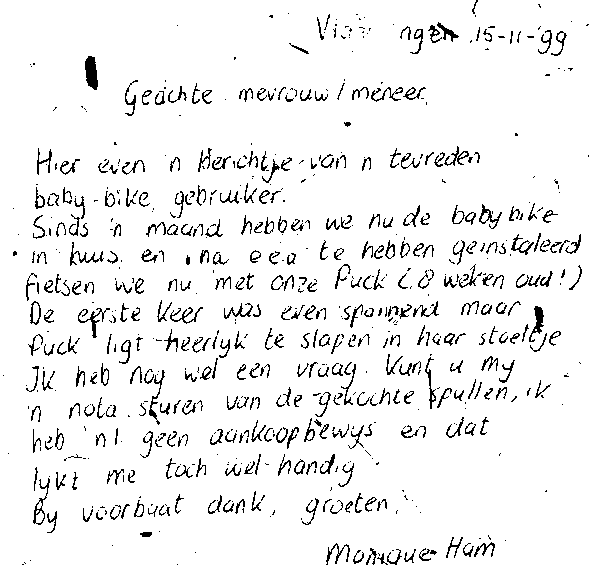 15-11-'99
Geachte mevrouw/meneer,
Hier even 'n berichtje van 'n tevreden
baby-bike gebruiker.
Sinds 'n maand hebben we nu de babybike
in huis en na e.e.a te hebben geinstaleerd
fietsen we nu met onze Puck (8 weken oud!)
De eerste keer was even spannend maar
Puck ligt heerlyk te slapen in haar stoeltje
Ik heb nog wel een vraag. Kunt u my
'n nota sturen van de gekochte spullen, ik
heb nl geen aankoopbewys en dat
lykt me toch wel handig
By voorbaat dank, groeten,
Monique Ham